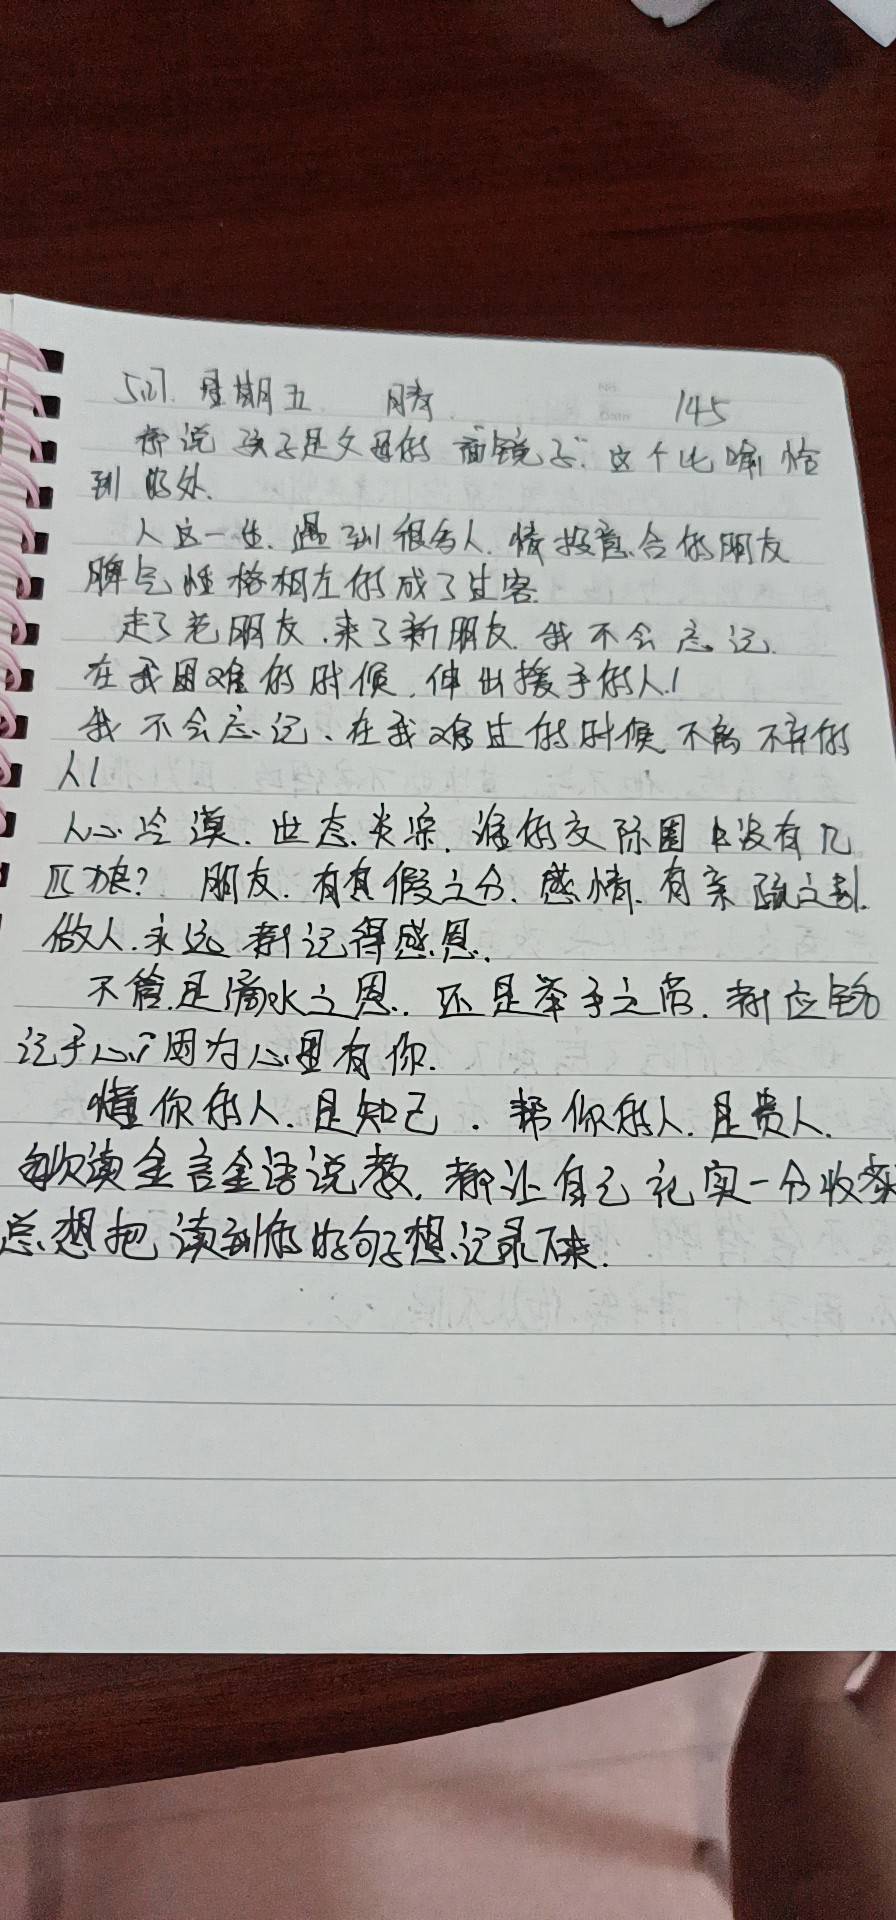 5.27. 星期五 晴. 145
都说孩子是父母的一面镜子.这个比喻恰
到好处.
人这一生.遇到很多人.情投意合的朋友
脾气性格相左的成了过客.
走了老朋友.来了新朋友.我不会忘记.
在我困难的时候.伸出援手的人!
我不会忘记.在我难过的时候不离不弃的
人!
人心冷漠.世态炎凉.谁的交际圈中没有几
匹狼? 朋友.有真假之分.感情.有亲疏之别.
做人.永远都记得感恩.
不管是滴水之恩.还是举手之劳.都应铭
记于心,因为心里有你.
懂你的人.是知己.帮你的人.是贵人.
每次读金言金语说教,都让自己充实一分收获
总想把读到的好句子想记录下来.